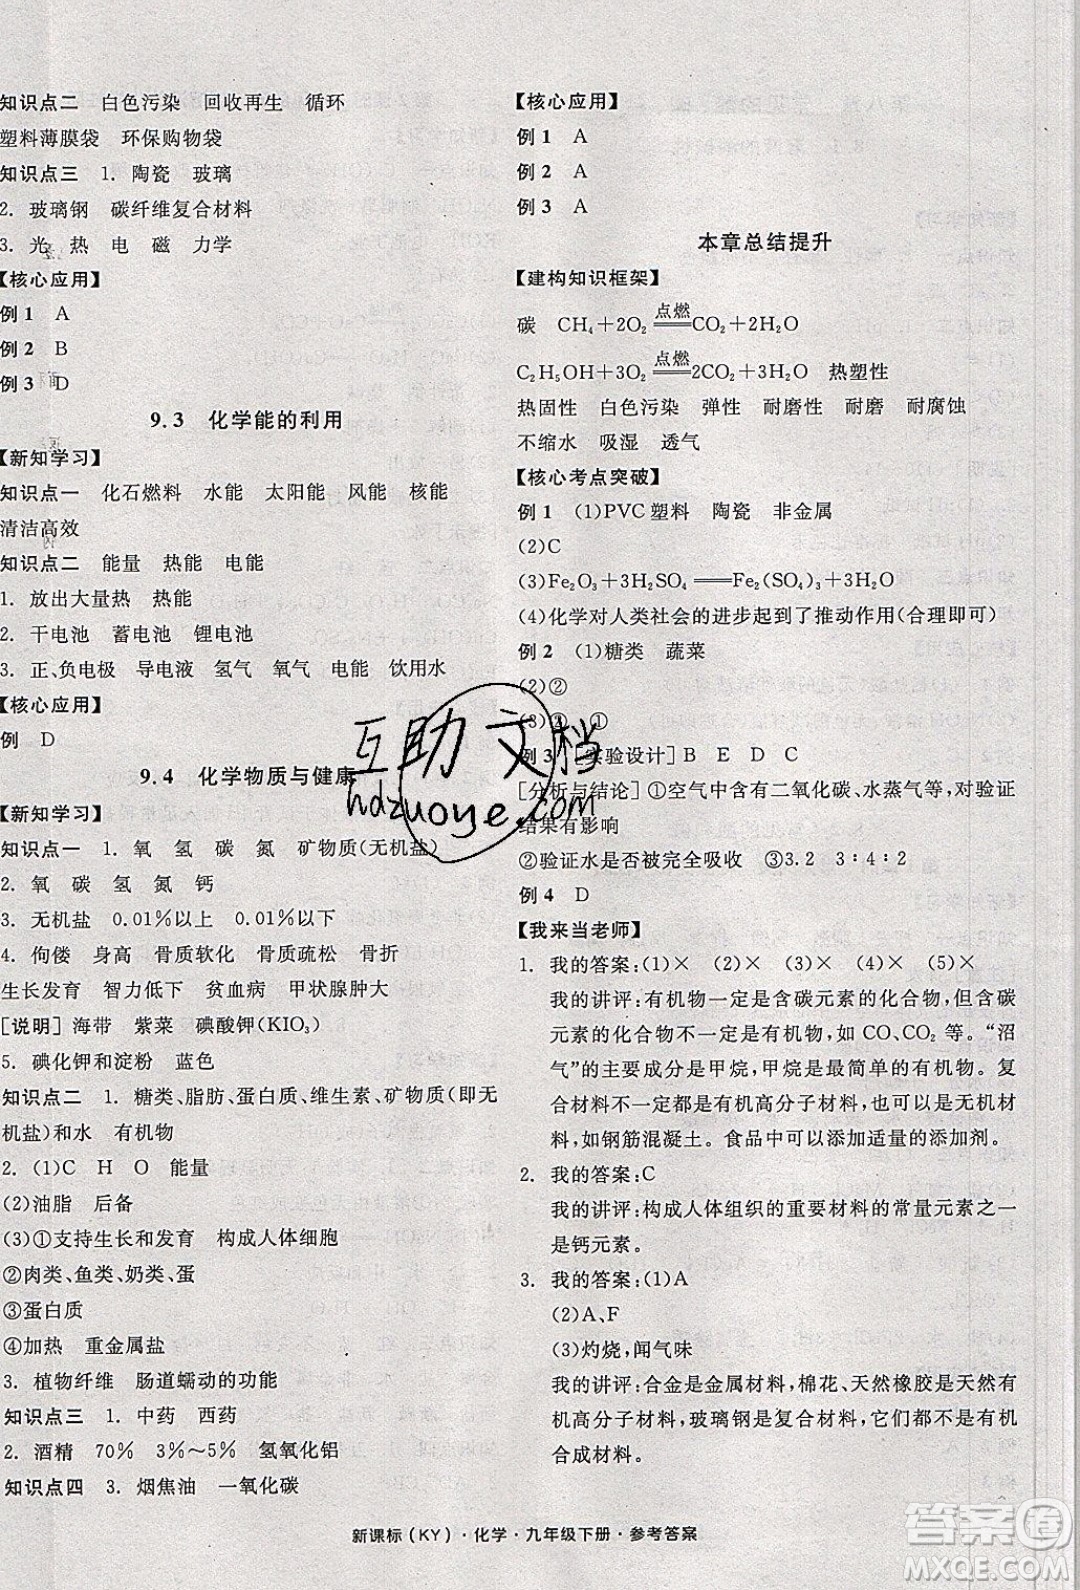 知识点二 白色污染 回收再生 循环
塑料薄膜袋 环保购物袋
知识点三 1. 陶瓷 玻璃
2. 玻璃钢 碳纤维复合材料
3. 光 热 电 磁 力学
【核心应用】
例 1 A
例 2 B
例 3 D
9.3 化学能的利用
【新知学习】
知识点一 化石燃料 水能 太阳能 风能 核能
清洁高效
知识点二 能量 热能 电能
1. 放出大量热 热能
2. 干电池 蓄电池 锂电池
3. 正、负电极 导电液 氢气 氧气 电能 饮用水
【核心应用】
例 D
9.4 化学物质与健康
【新知学习】
知识点一 1. 氧 氢 碳 氮 矿物质(无机盐)
2. 氧 碳 氢 氮 钙
3. 无机盐 0.01%以上 0.01%以下
4. 佝偻 身高 骨质软化 骨质疏松 骨折
生长发育 智力低下 贫血病 甲状腺肿大
[说明] 海带 紫菜 碘酸钾(KIO₃)
5. 碘化钾和淀粉 蓝色
知识点二 1. 糖类、脂肪、蛋白质、维生素、矿物质(即无
机盐)和水 有机物
2. (1)C H O 能量
(2)油脂 后备
(3)①支持生长和发育 构成人体细胞
②肉类、鱼类、奶类、蛋
③蛋白质
④加热 重金属盐
3. 植物纤维 肠道蠕动的功能
知识点三 1. 中药 西药
2. 酒精 70% 3%～5% 氢氧化铝
知识点四 3. 烟焦油 一氧化碳
【核心应用】
例 1 A
例 2 A
例 3 A
本章总结提升
【建构知识框架】
碳 CH₄+2O₂ 点燃══ CO₂+2H₂O
C₂H₅OH+3O₂ 点燃══ 2CO₂+3H₂O 热塑性
热固性 白色污染 弹性 耐磨性 耐腐蚀
不缩水 吸湿 透气
【核心考点突破】
例 1 (1)PVC塑料 陶瓷 非金属
(2)C
(3)Fe₂O₃+3H₂SO₄══Fe₂(SO₄)₃+3H₂O
(4)化学对人类社会的进步起到了推动作用(合理即可)
例 2 (1)糖类 蔬菜
(2)②
(3)② ①
例 3 [实验设计] B E D C
[分析与结论] ①空气中含有二氧化碳、水蒸气等,对验证
结果有影响
②验证水是否被完全吸收 ③3.2 3∶4∶2
例 4 D
【我来当老师】
1. 我的答案:(1)× (2)× (3)× (4)× (5)×
我的讲评:有机物一定是含碳元素的化合物,但含碳
元素的化合物不一定是有机物,如 CO、CO₂ 等。“沼
气”的主要成分是甲烷,甲烷是最简单的有机物。复
合材料不一定都是有机高分子材料,也可能是无机材料,
如钢筋混凝土。食品中可以添加适量的添加剂。
2. 我的答案:C
我的讲评:构成人体组织的重要材料的常量元素之一
是钙元素。
3. 我的答案:(1)A
(2)A、F
(3)灼烧,闻气味
我的讲评:合金是金属材料,棉花、天然橡胶是天然有
机高分子材料,玻璃钢是复合材料,塑料是有机
合成材料。
互助文档
hdzuoye.com
新课标(KY)·化学·九年级下册·参考答案
答案圈
MXQE.COM